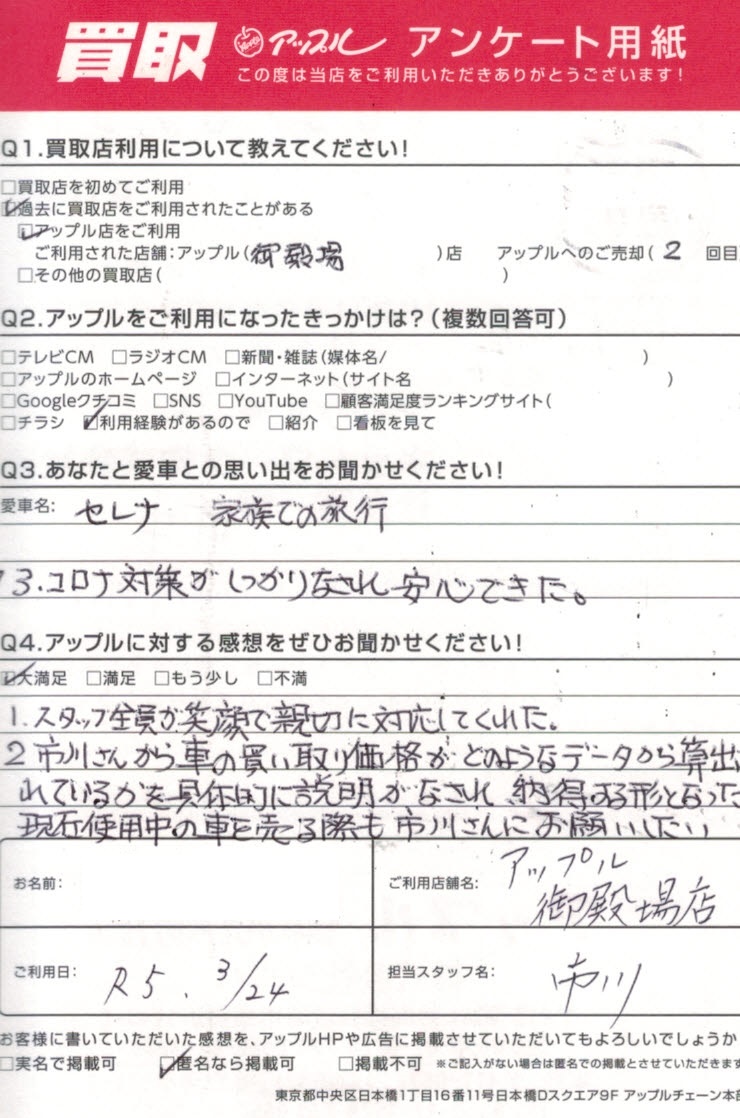 買取 Apple アップル アンケート用紙
この度は当店をご利用いただきありがとうございます!
Q1.買取店利用について教えてください!
□買取店を初めてご利用
☑過去に買取店をご利用されたことがある
☑アップル店をご利用
ご利用された店舗:アップル(御殿場)店 アップルへのご売却(2 回目
□その他の買取店( )
Q2.アップルをご利用になったきっかけは?(複数回答可)
□テレビCM □ラジオCM □新聞・雑誌(媒体名/ )
□アップルのホームページ □インターネット(サイト名 )
□Googleクチコミ □SNS □YouTube □顧客満足度ランキングサイト(
□チラシ ☑利用経験があるので □紹介 □看板を見て
Q3.あなたと愛車との思い出をお聞かせください!
愛車名: セレナ 家族での旅行
3.コロナ対策がしっかりなされ安心できた。
Q4.アップルに対する感想をぜひお聞かせください!
☑大満足 □満足 □もう少し □不満
1.スタッフ全員が笑顔で親切に対応してくれた。
2 市川さんから車の買い取り価格がどのようなデータから算出
れているかを具体的に説明がなされ 納得の形となった
現在使用中の車を売る際も市川さんにお願いしたい
お名前:
ご利用店舗名: アップル
御殿場店
ご利用日: R5. 3/24
担当スタッフ名: 市川
お客様に書いていただいた感想を、アップルHPや広告に掲載させていただいてもよろしいでしょうか
□実名で掲載可 ☑匿名なら掲載可 □掲載不可 ※ご記入がない場合は匿名での掲載とさせていただきます
東京都中央区日本橋1丁目16番11号日本橋Dスクエア9F アップルチェーン本部